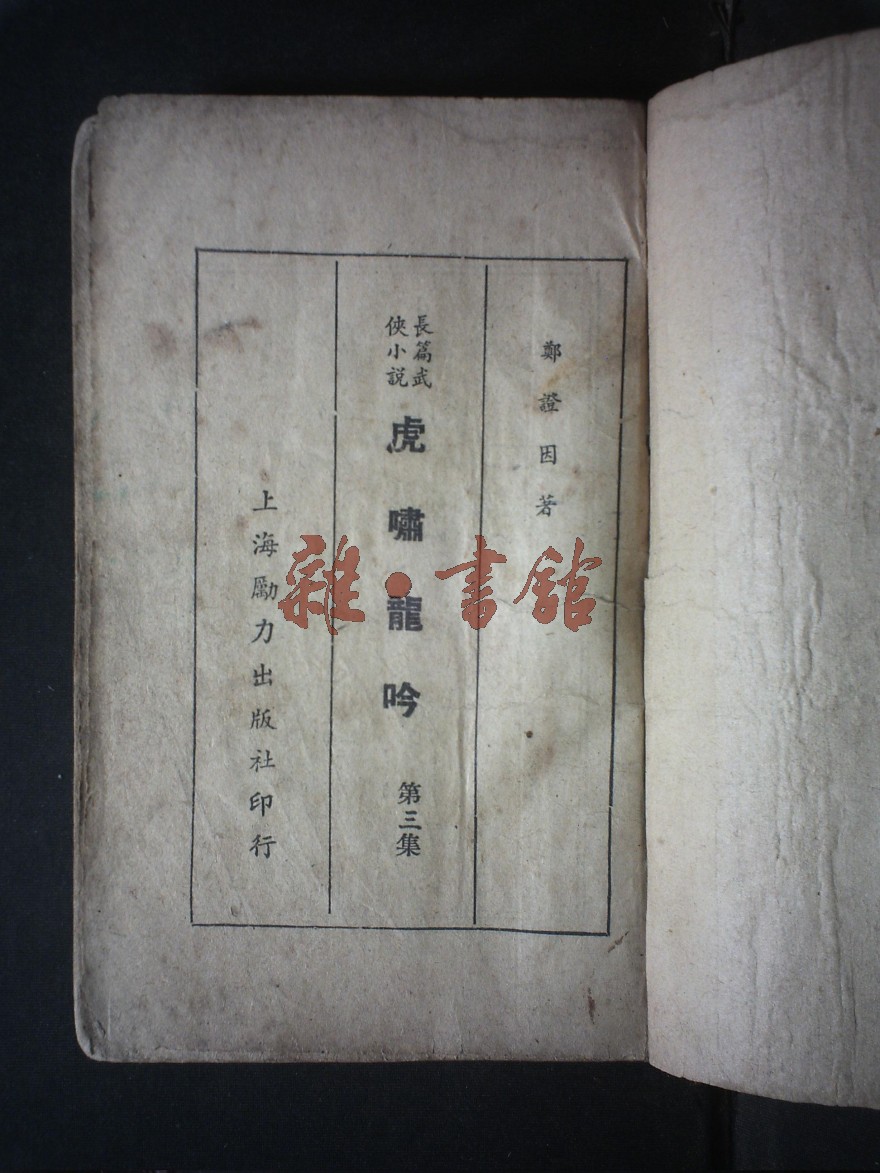 鄭證因著
長篇武
俠小説
虎嘯龍吟
第三集
上海勵力出版社印行
雜·書館